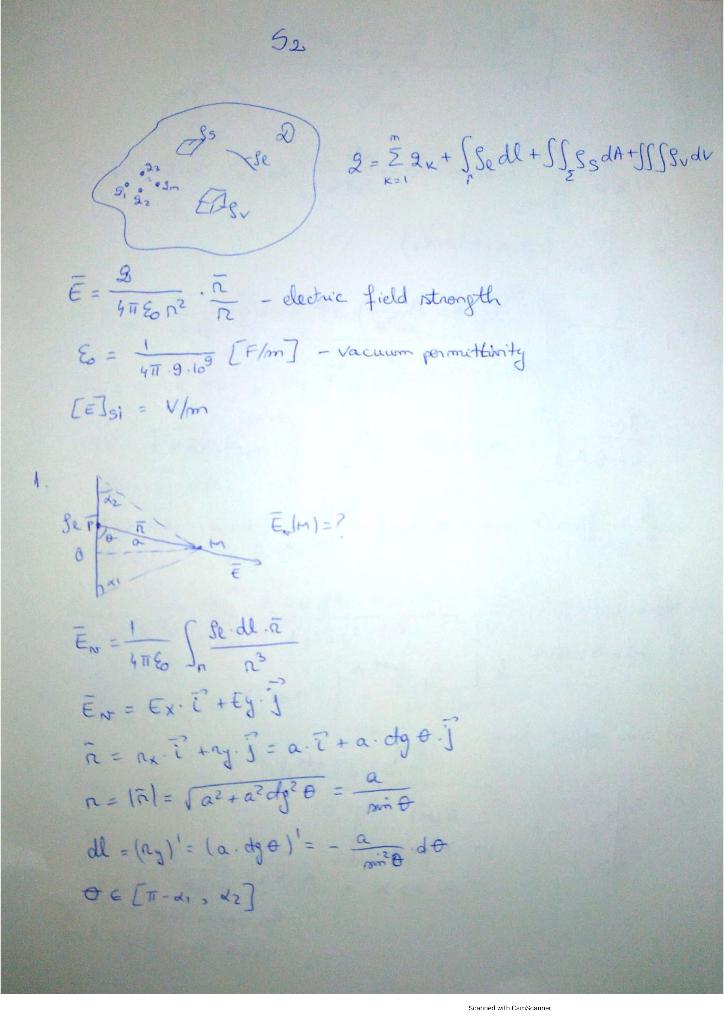 S2
ρs D
q3 ρe
q1 q2 qn ρv
q = Σ_{k=1}^{n} qk + ∫_Γ ρe dl + ∬_Σ ρs dA + ∭ ρv dv
Ē = q / (4πε0 r²) · r̄ / r – electric field strength
ε0 = 1 / (4π·9·10⁹) [F/m] – vacuum permittivity
[Ē]SI = V/m
1.
α2
ρe P r̄ Ēv(M)=?
θ a M
0
α1 Ē
Ēv = 1 / (4πε0) ∫_Γ ρe·dl·r̄ / r³
Ēv = Ex·i⃗ + Ey·j⃗
r̄ = rx·i⃗ + ry·j⃗ = a·i⃗ + a·ctg θ·j⃗
r = |r̄| = √(a² + a² ctg² θ) = a / sin θ
dl = (ry)' = (a·ctg θ)' = – a / sin²θ · dθ
θ ∈ [π-α1, α2]
Scanned with CamScanner